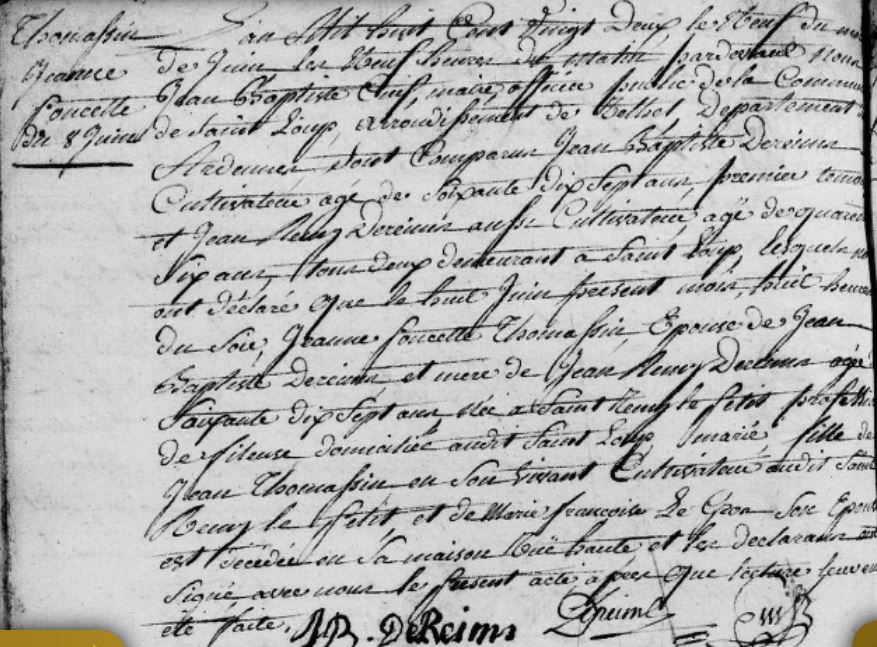 Thomassin
Jeanne
Poncette
Du 8 Juin
L'an Mil huit Cent Vingt Deux le Neuf du mois
de Juin les Neuf heures du matin pardevant nous
Jean Baptiste maire, officier public de la Commune
de Saint Loup, arrondissement de Rethel, Département
Ardennes, sont Comparus Jean Baptiste Dereims
Cultivateur agé de Soixante dix Sept ans, premier temoin
et Jean Remy Dereims aussi Cultivateur, agé de quarente
Six ans, tous deux demeurant a Saint Loup, lesquels
ont déclaré que le huit Juin présent mois, huit heures
du Soir, Jeanne Poncette Thomassin, Epouse de Jean
Baptiste Dereims et mere de Jean Remy Dereims agée
Soixante dix Sept ans Née a Saint Remy le petit proffession
de fileuse domiciliée audit Saint Loup mariée fille de
Jean Thomassin en Son vivant Cultivateur audit Saint
Remy le petit, et de Marie françoise Le Gros Son Epouse
est Décédée en Sa maison Rue haute et les declarans ont
Signé avec nous le present acte après que lecture leur en
été faite.
J B. DeReims